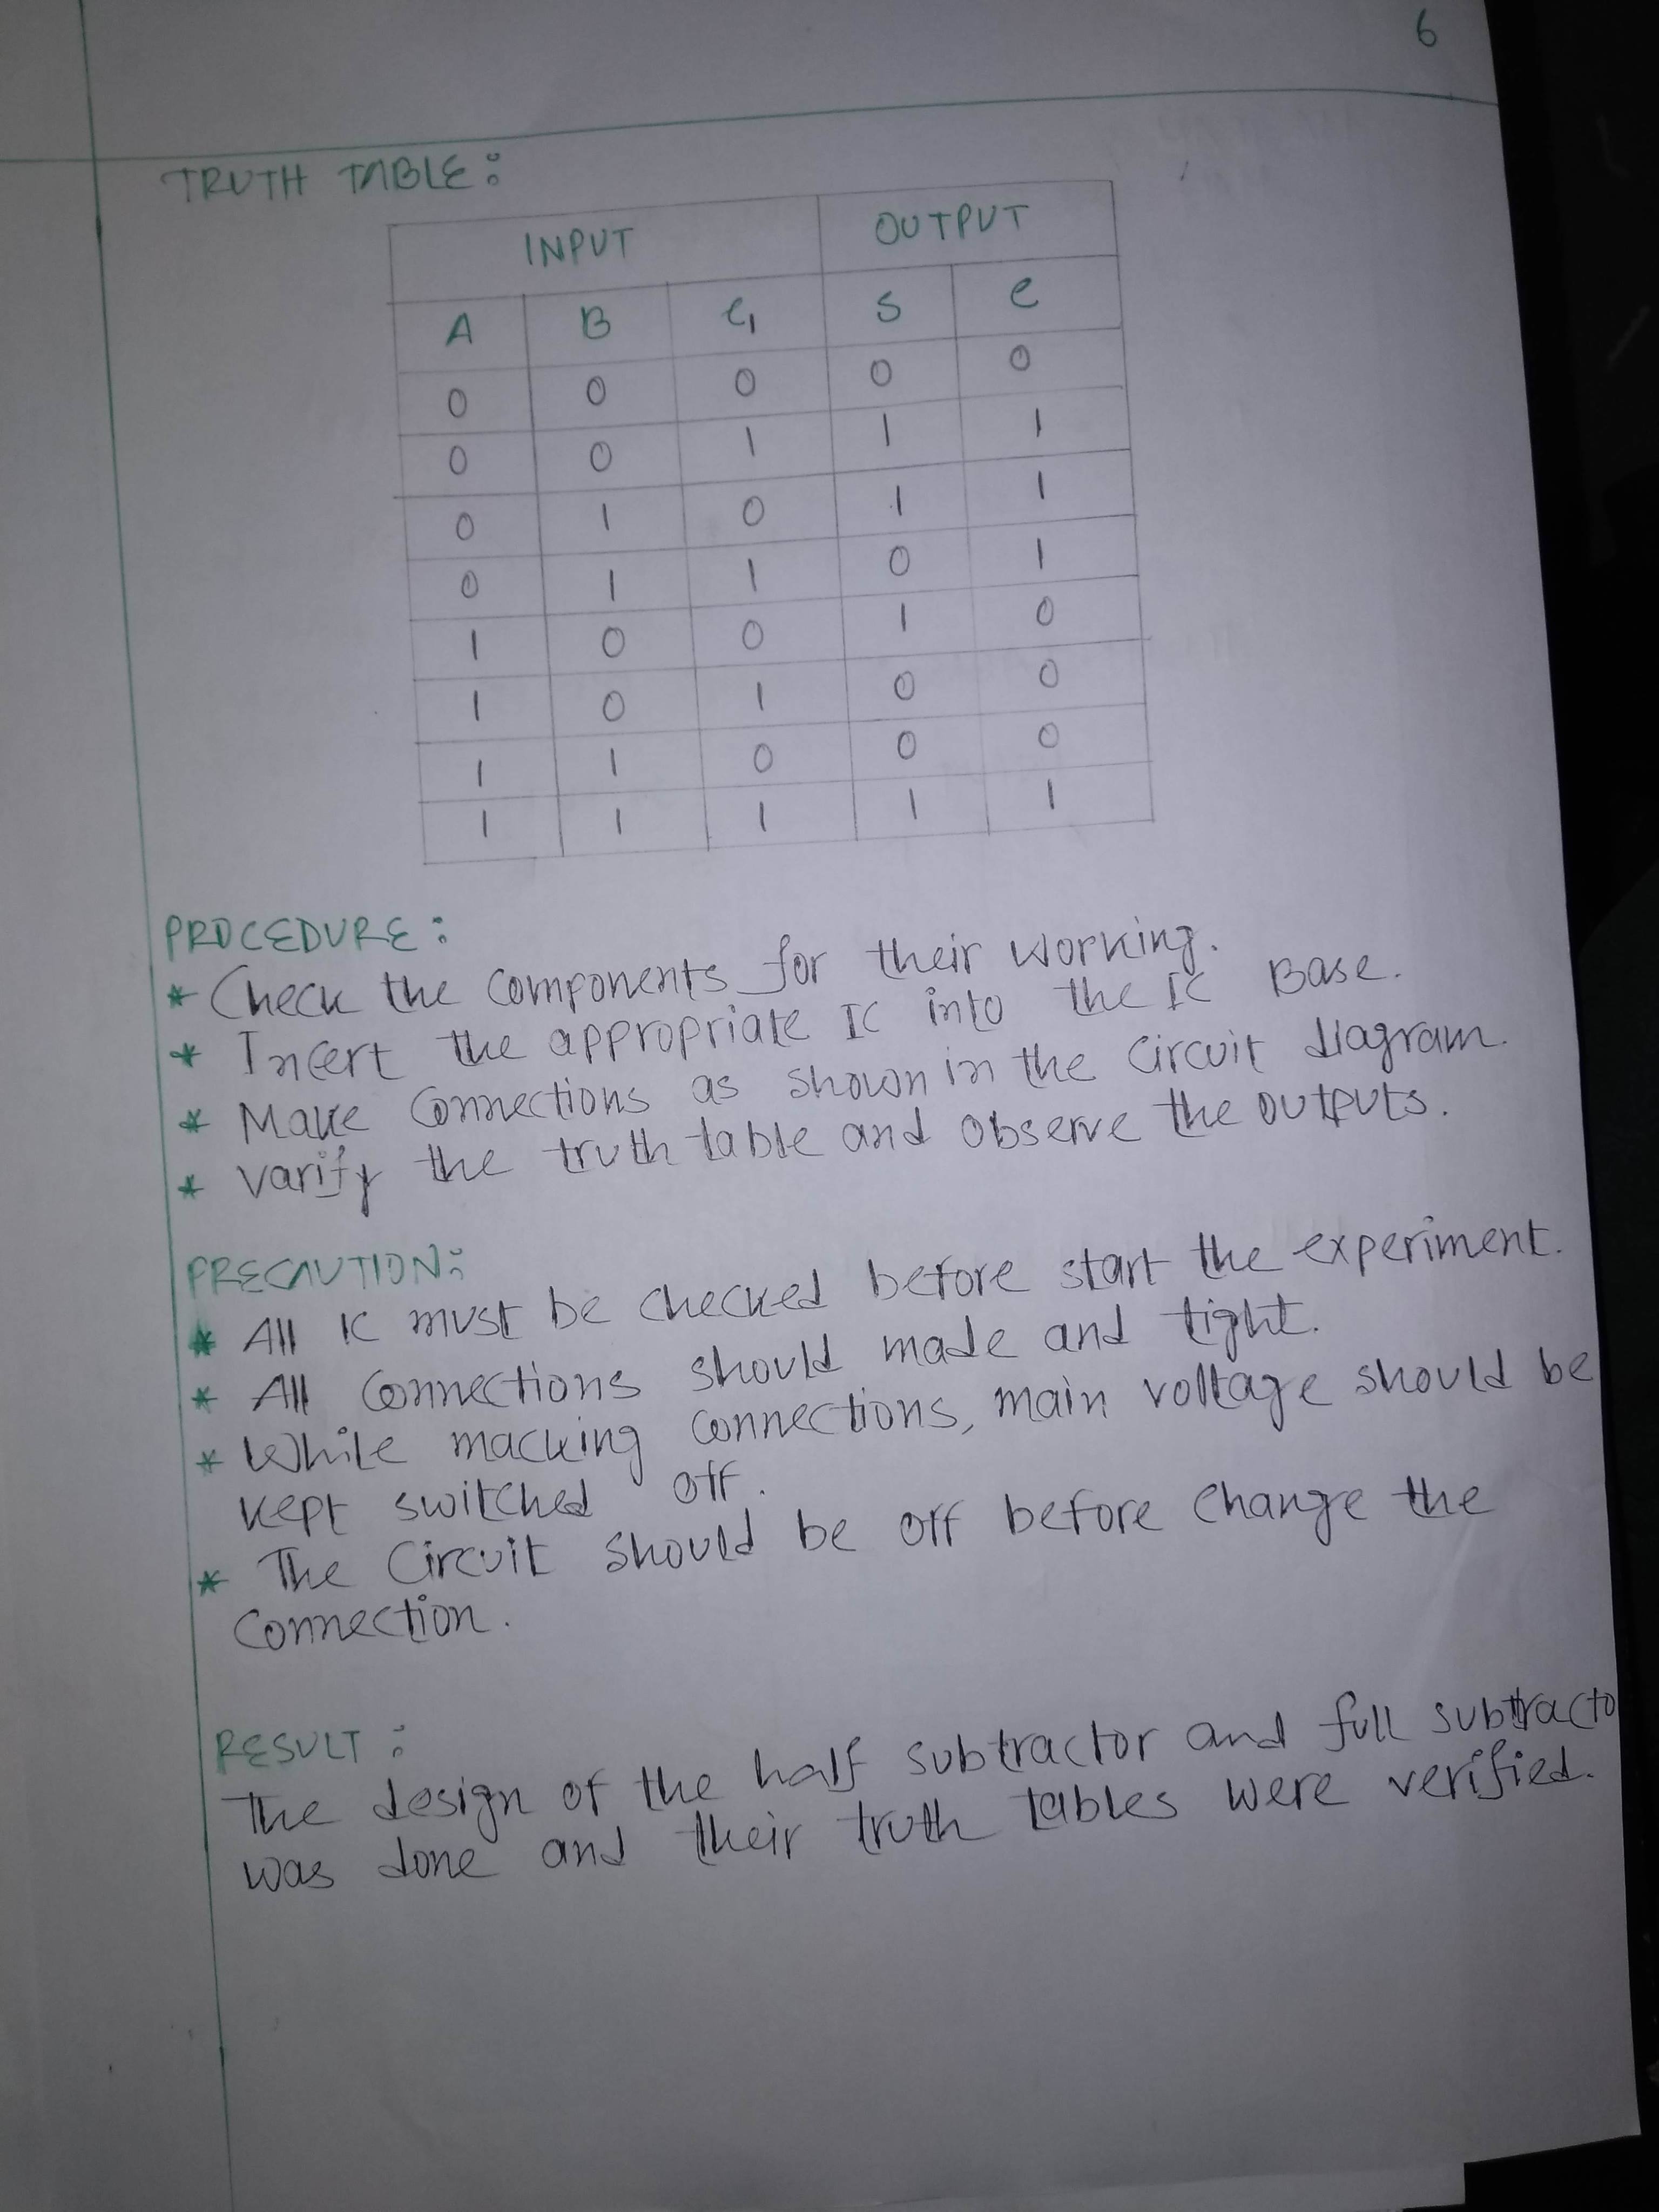 6
TRUTH TABLE:
INPUT OUTPUT
A B C1 S C
0 0 0 0 0
0 0 1 1 1
0 1 0 1 1
0 1 1 0 1
1 0 0 1 0
1 0 1 0 0
1 1 0 0 0
1 1 1 1 1
PROCEDURE:
* Check the components for their working.
* Incert the appropriate IC into the IC Base.
* Make connections as shown in the circuit diagram.
* varify the truth table and observe the outputs.
PRECAUTION:
* All IC must be checked before start the experiment.
* All connections should made and tight.
* While macking connections, main voltage should be
kept switched off.
* The circuit should be off before change the
connection.
RESULT:
The design of the half subtractor and full subtracto
was done and their truth tables were verified.